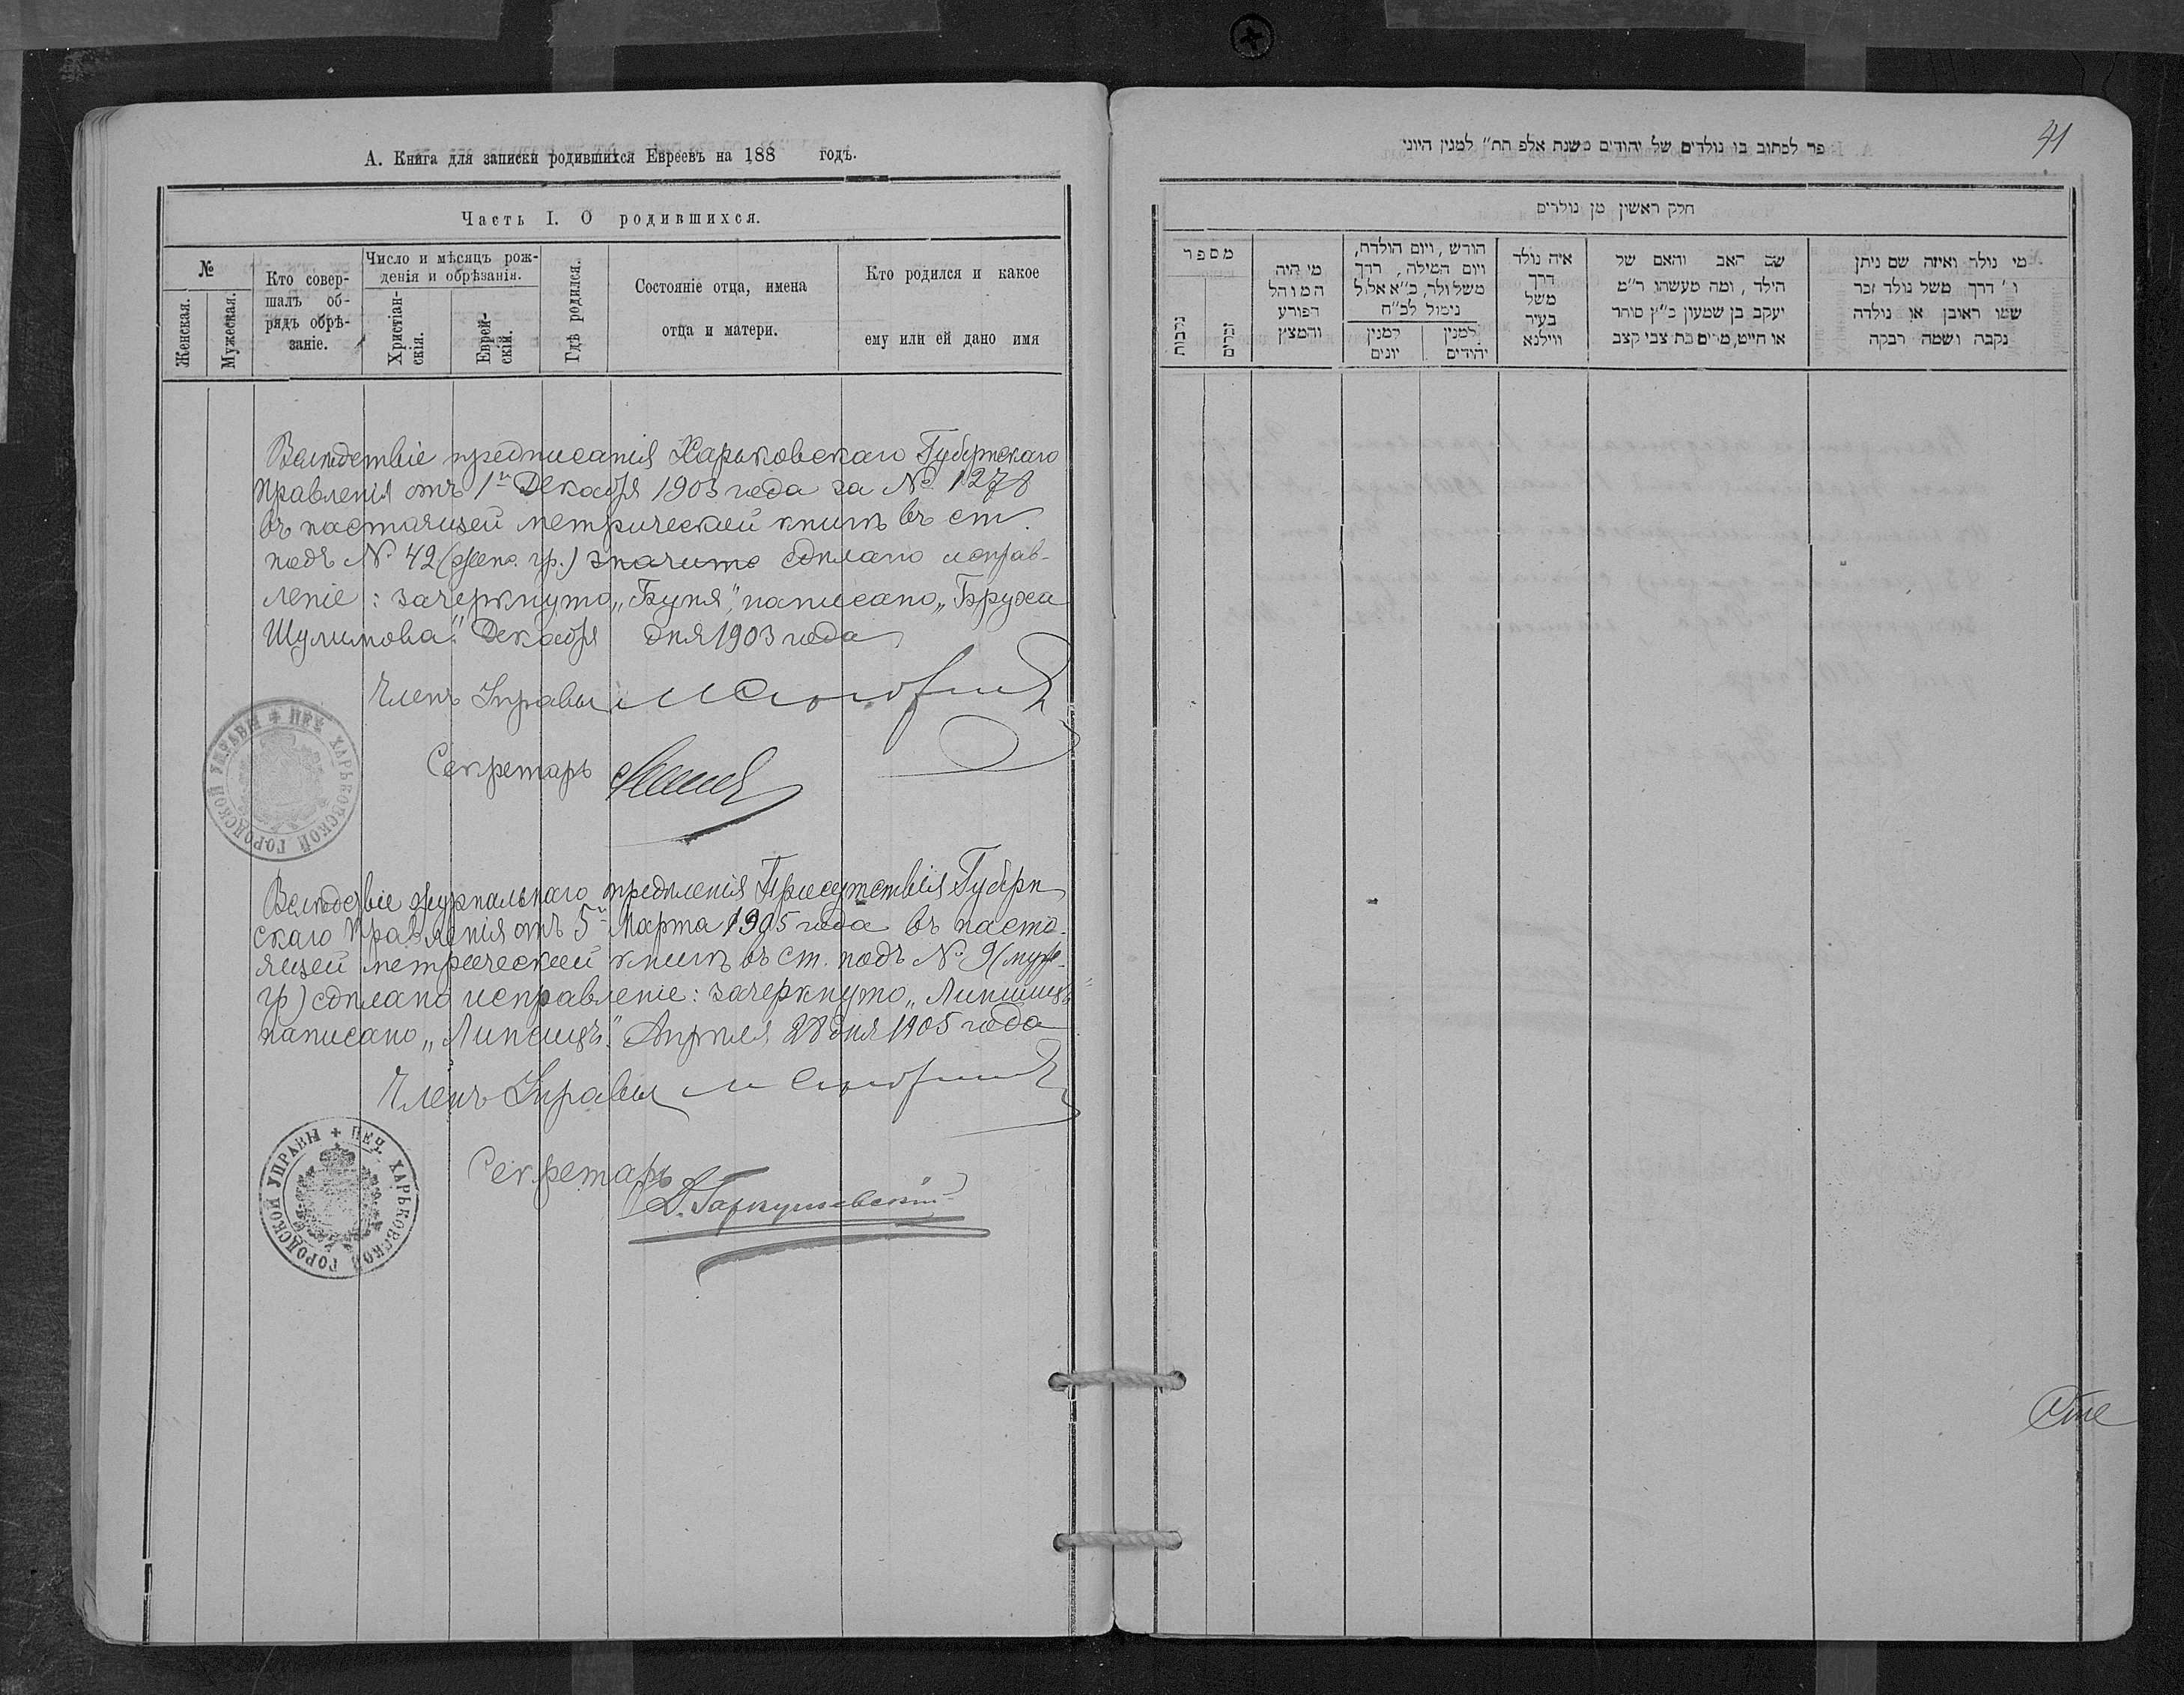 А. Книга для записки родившихся Евреевъ на 188 годъ.
Часть I. О родившихся.
№
Женская.
Мужеская.
Кто совер-
шалъ об-
рядъ обрѣ-
заніе.
Число и мѣсяцъ рож-
денія и обрѣзанія.
Христіан-
скія.
Еврей-
скій.
Гдѣ родился.
Состояніе отца, имена
отца и матери.
Кто родился и какое
ему или ей дано имя
Вслѣдствіе предписанія Харьковскаго Губернскаго
Правленія отъ 1го Декабря 1903 года за № 1278
въ настоящей метрической книгѣ въ ст.
подъ № 42 (женс. гр.) значито сдѣлано исправ-
леніе: зачеркнуто „Буня", написано „Бруха
Шулимова". Декабря дня 1903 года
Членъ Управы
Секретарь
ПЕЧ. ХАРЬКОВСКОЙ ГОРОДСКОЙ УПРАВЫ
Вслѣдсвіе журнальнаго опредѣленія Присутствія Губерн
скаго Правленія отъ 5го Марта 1905 года въ насто-
ящей метрической книгѣ въ ст. подъ № 9 (муж.
гр) сдѣлано исправленіе: зачеркнуто „Липшицъ"
написано „Липсицъ". Апрѣля 28 дня 1905 года
Членъ Управы
Секретарь
ПЕЧ. ХАРЬКОВСКОЙ ГОРОДСКОЙ УПРАВЫ
41
פר לכתוב בו נולדים של יהודים משנת אלפ תת״ למנין היוני
חלק ראשון מן נולדים
מספר
נקבות
זכרים
מי היה
המוהל
הפורע
והמצץ
חורש, ויום הולדת,
ויום המילה, דרך
משל ולד, כ״א אלול
נימול לכ״ח
למנין
יונים
למנין
יהודים
איה נולד
דרך
משל
בעיר
ווילנא
שם האב והאם של
הילד, ומה מעשהו ר״מ
יעקב בן שמעון כ״ץ סוחר
או חייט, מרים בת צבי קצב
מי נולד ואיזה שם ניתן
ו׳ דרך משל נולד זכר
שמו ראובן או נולדה
נקבה ושמה רבקה